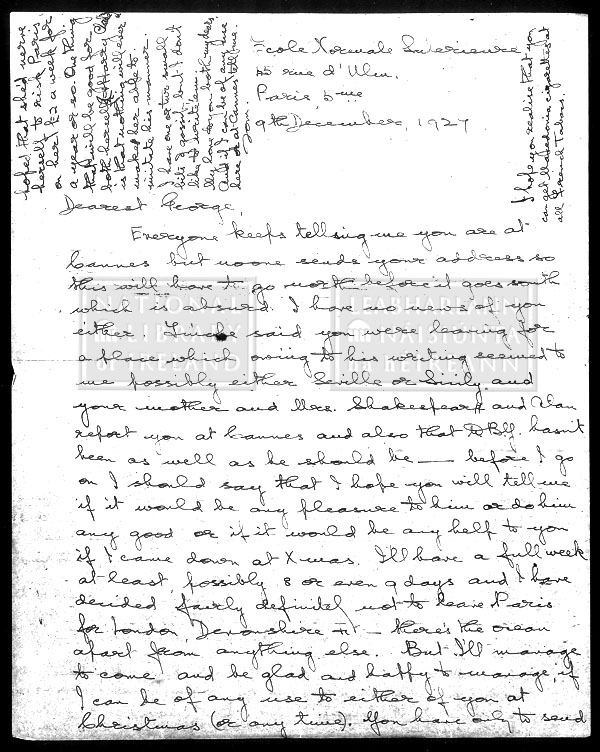 Ecole Normale Superieure
45 rue d'Ulm.
Paris, 5me
9th December, 1927
Dearest George,
Everyone keeps telling me you are at
Cannes but no one sends your address so
this will have to go north before it goes south
which is absurd. I have no news of you
either said you were leaving for
a place which owing to his writing seemed to
me possibly either Seville or Sicily and
your mother and Mrs. Shakespear and Wan
report you at Cannes and also that WBY. hasn't
been as well as he should be — before I go
on I should say that I hope you will tell me
if it would be any pleasure to him or do him
any good or if it would be any help to you
if I came down at Xmas. I'll have a full week
at least, possibly 8 or even 9 days and I have
decided fairly definitely not to leave Paris
for London, Devonshire St – there's the ocean
apart from anything else. But I'll manage
to come, and be glad and happy to manage, if
I can be of any use to either of you at
Christmas (or any time). You have only to send
hope that she'd nerve
herself to risk Paris
on her £2 a week for
a year or so. One thing
that will be good for
both herself & Harry
is that nothing will ever
make her able to
imitate his manner.
I have one or two small
bits of gossip, but I don't
like to write them.
My love to you both my dears
And if I can be of any use
here or at Cannes tell me.
Tom.
I hope you realise that you
can get Macedonia cigarettes at
all French Tabacs.
NATIONAL
LIBRARY
OF IRELAND
LEABHARLANN
NÁISIÚNTA
NA HÉIREANN